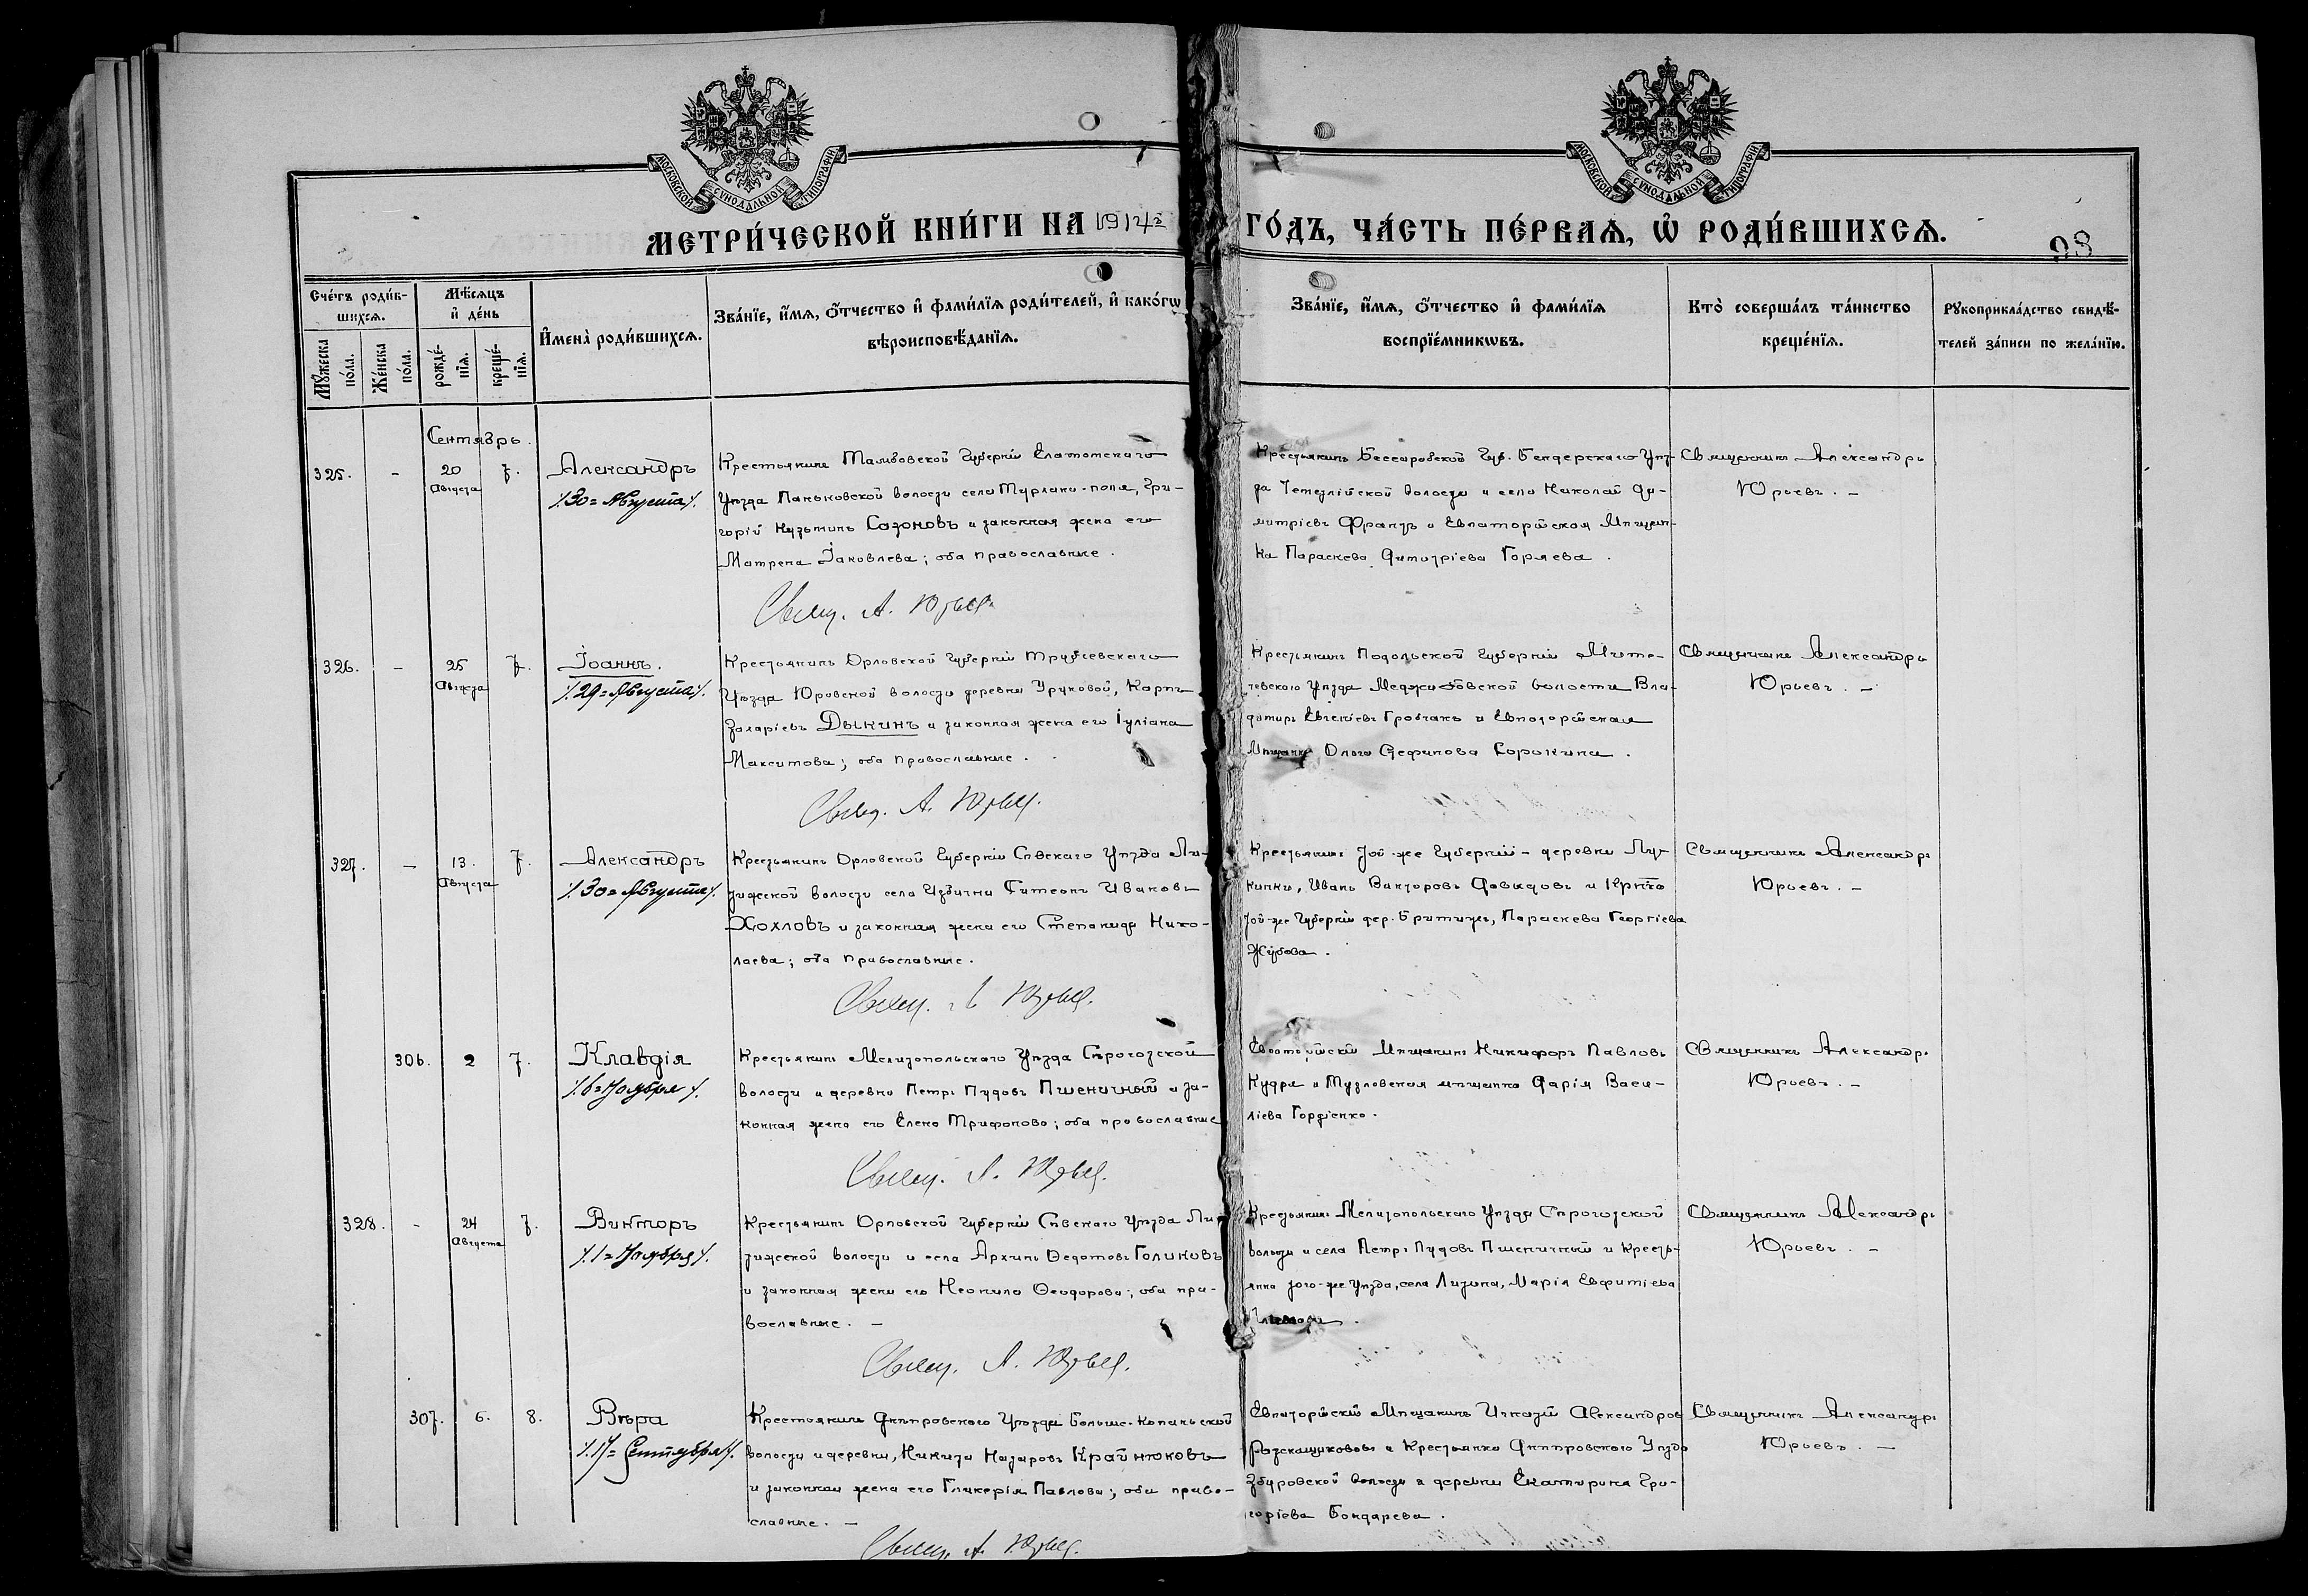 МОСКОВСКОЙ СѴНОДАЛЬНОЙ ТИПОГРАФІИ
МОСКОВСКОЙ СѴНОДАЛЬНОЙ ТИПОГРАФІИ
МЕТРИ́ЧЕСКОЙ КНИ́ГИ НА 1914й ГО́ДЪ, ЧА́СТЬ ПЕ́РВАѦ, Ѡ҆ РОДИ́ВШИХСѦ.
98
Сче́тъ роди́в-
шихсѧ.
Мѣ́сѧцъ
и҆ де́нь
Мꙋ́жеска
по́ла.
Же́нска
по́ла.
рожде́-
нїѧ.
креще́-
нїѧ.
И҆мена̀ роди́вшихсѧ.
Зва́нїе, и҆́мѧ, ѻ҆́тчество и҆ фами́лїѧ роди́телей, и҆ како́гѡ
вѣроисповѣ́данїѧ.
Зва́нїе, и҆́мѧ, ѻ҆́тчество и҆ фами́лїѧ
воспрїе́мникѡвъ.
Кто̀ соверша́лъ та́инство
креще́нїѧ.
Рꙋкоприкла́дство свидѣ́-
телей за́писи по жела́нїю.
Сентябрь.
325. - 20 Августа 7.
Александръ
/.30=Августа/.
Крестьянинъ Тамбовской Губерніи Елатомскаго
Уѣзда Паньковской волости села Мурлаки-поля, Гри-
горій Кузьминъ Сазоновъ и законная жена его
Матрена Іаковлева; оба православные.
Свящ. А. Юрьев
Крестьянинъ Бессарабской Губ. Бендерскаго Уѣз-
да волости и села Николай Ди-
митріевъ Францъ и Евпаторійская Мѣщан-
ка Параскева Димитріева Горяева.
Священникъ Александръ
Юрьевъ. -
326. - 25 Августа 7.
Іоаннъ.
/.29=Августа/.
Крестьянинъ Орловской Губерніи Трубчевскаго
Уѣзда Юровской волости деревни Уруковой, Карпъ
Захаріевъ Дыкинъ и законная жена его Іуліана
Максимова; оба православные.
Свящ. А. Юрьев.
Крестьянинъ Подольской Губерніи Лити-
чевскаго Уѣзда Меджибовской волости Вла-
димиръ Евгеніевъ Гробчакъ и Евпаторійская
Мѣщанка Ольга Стефанова Сорокина.
Священникъ Александръ
Юрьевъ. -
327. - 13. Августа 7.
Александръ
/.30=Августа/.
Крестьянинъ Орловской Губерніи Сѣвскаго Уѣзда Ли-
тижской волости села Избични Симеонъ Ивановъ
Хохловъ и законная жена его Степанида Нико-
лаева; оба православные.
Свящ. А Юрьев.
Крестьянинъ той-же Губерніи - деревни Лу-
кинки, Иванъ Викторовъ Давыдовъ и Кр-нка
той-же Губерніи дер. Параскева Георгіева
Жубова.
Священникъ Александръ
Юрьевъ. -
306. 2 7.
Клавдія
/.6=Ноября/.
Крестьянинъ Мелитопольскаго Уѣзда Сѣрогозской
волости и деревни Петръ Пудовъ Пшеничный и за-
конная жена его Елена Трифонова; оба православные
Свящ. А. Юрьев.
Евпаторійскій Мѣщанинъ Никифоръ Павловъ
Кудря и мѣщанка Дарія Васи-
ліева Гордіенко.
Священникъ Александръ
Юрьевъ. -
328. - 24 Августа 7.
Викторъ
/.1=Ноября/.
Крестьянинъ Орловской Губерніи Сѣвскаго Уѣзда Ли-
тижской волости и села Архипъ Федотовъ Голиковъ
и законная жена его Неонила Феодорова; оба пра-
вославные. -
Свящ. А. Юрьев.
Крестьянинъ Мелитопольскаго Уѣзда Сѣрогозской
волости и села Петръ Пудовъ Пшеничный и Кресть-
янка того-же Уѣзда, села Марія Евфиміева
Священникъ Александръ
Юрьевъ. -
307. 6. 8.
Вѣра
/.17=Сентября/.
Крестьянинъ Днѣпровскаго Уѣзда Больше-Копаньской
волости и деревни, Никита Назаровъ Крайнюковъ
и законная жена его Гликерія Павлова; оба право-
славные. -
Свящ. А. Юрьев.
Евпаторійскій Мѣщанинъ Игнатій Александровъ
и Крестьянка Днѣпровскаго Уѣзда
Збурьевской волости и деревни Екатерина Гри-
горіева Бондарева.
Священникъ Александръ
Юрьевъ. -